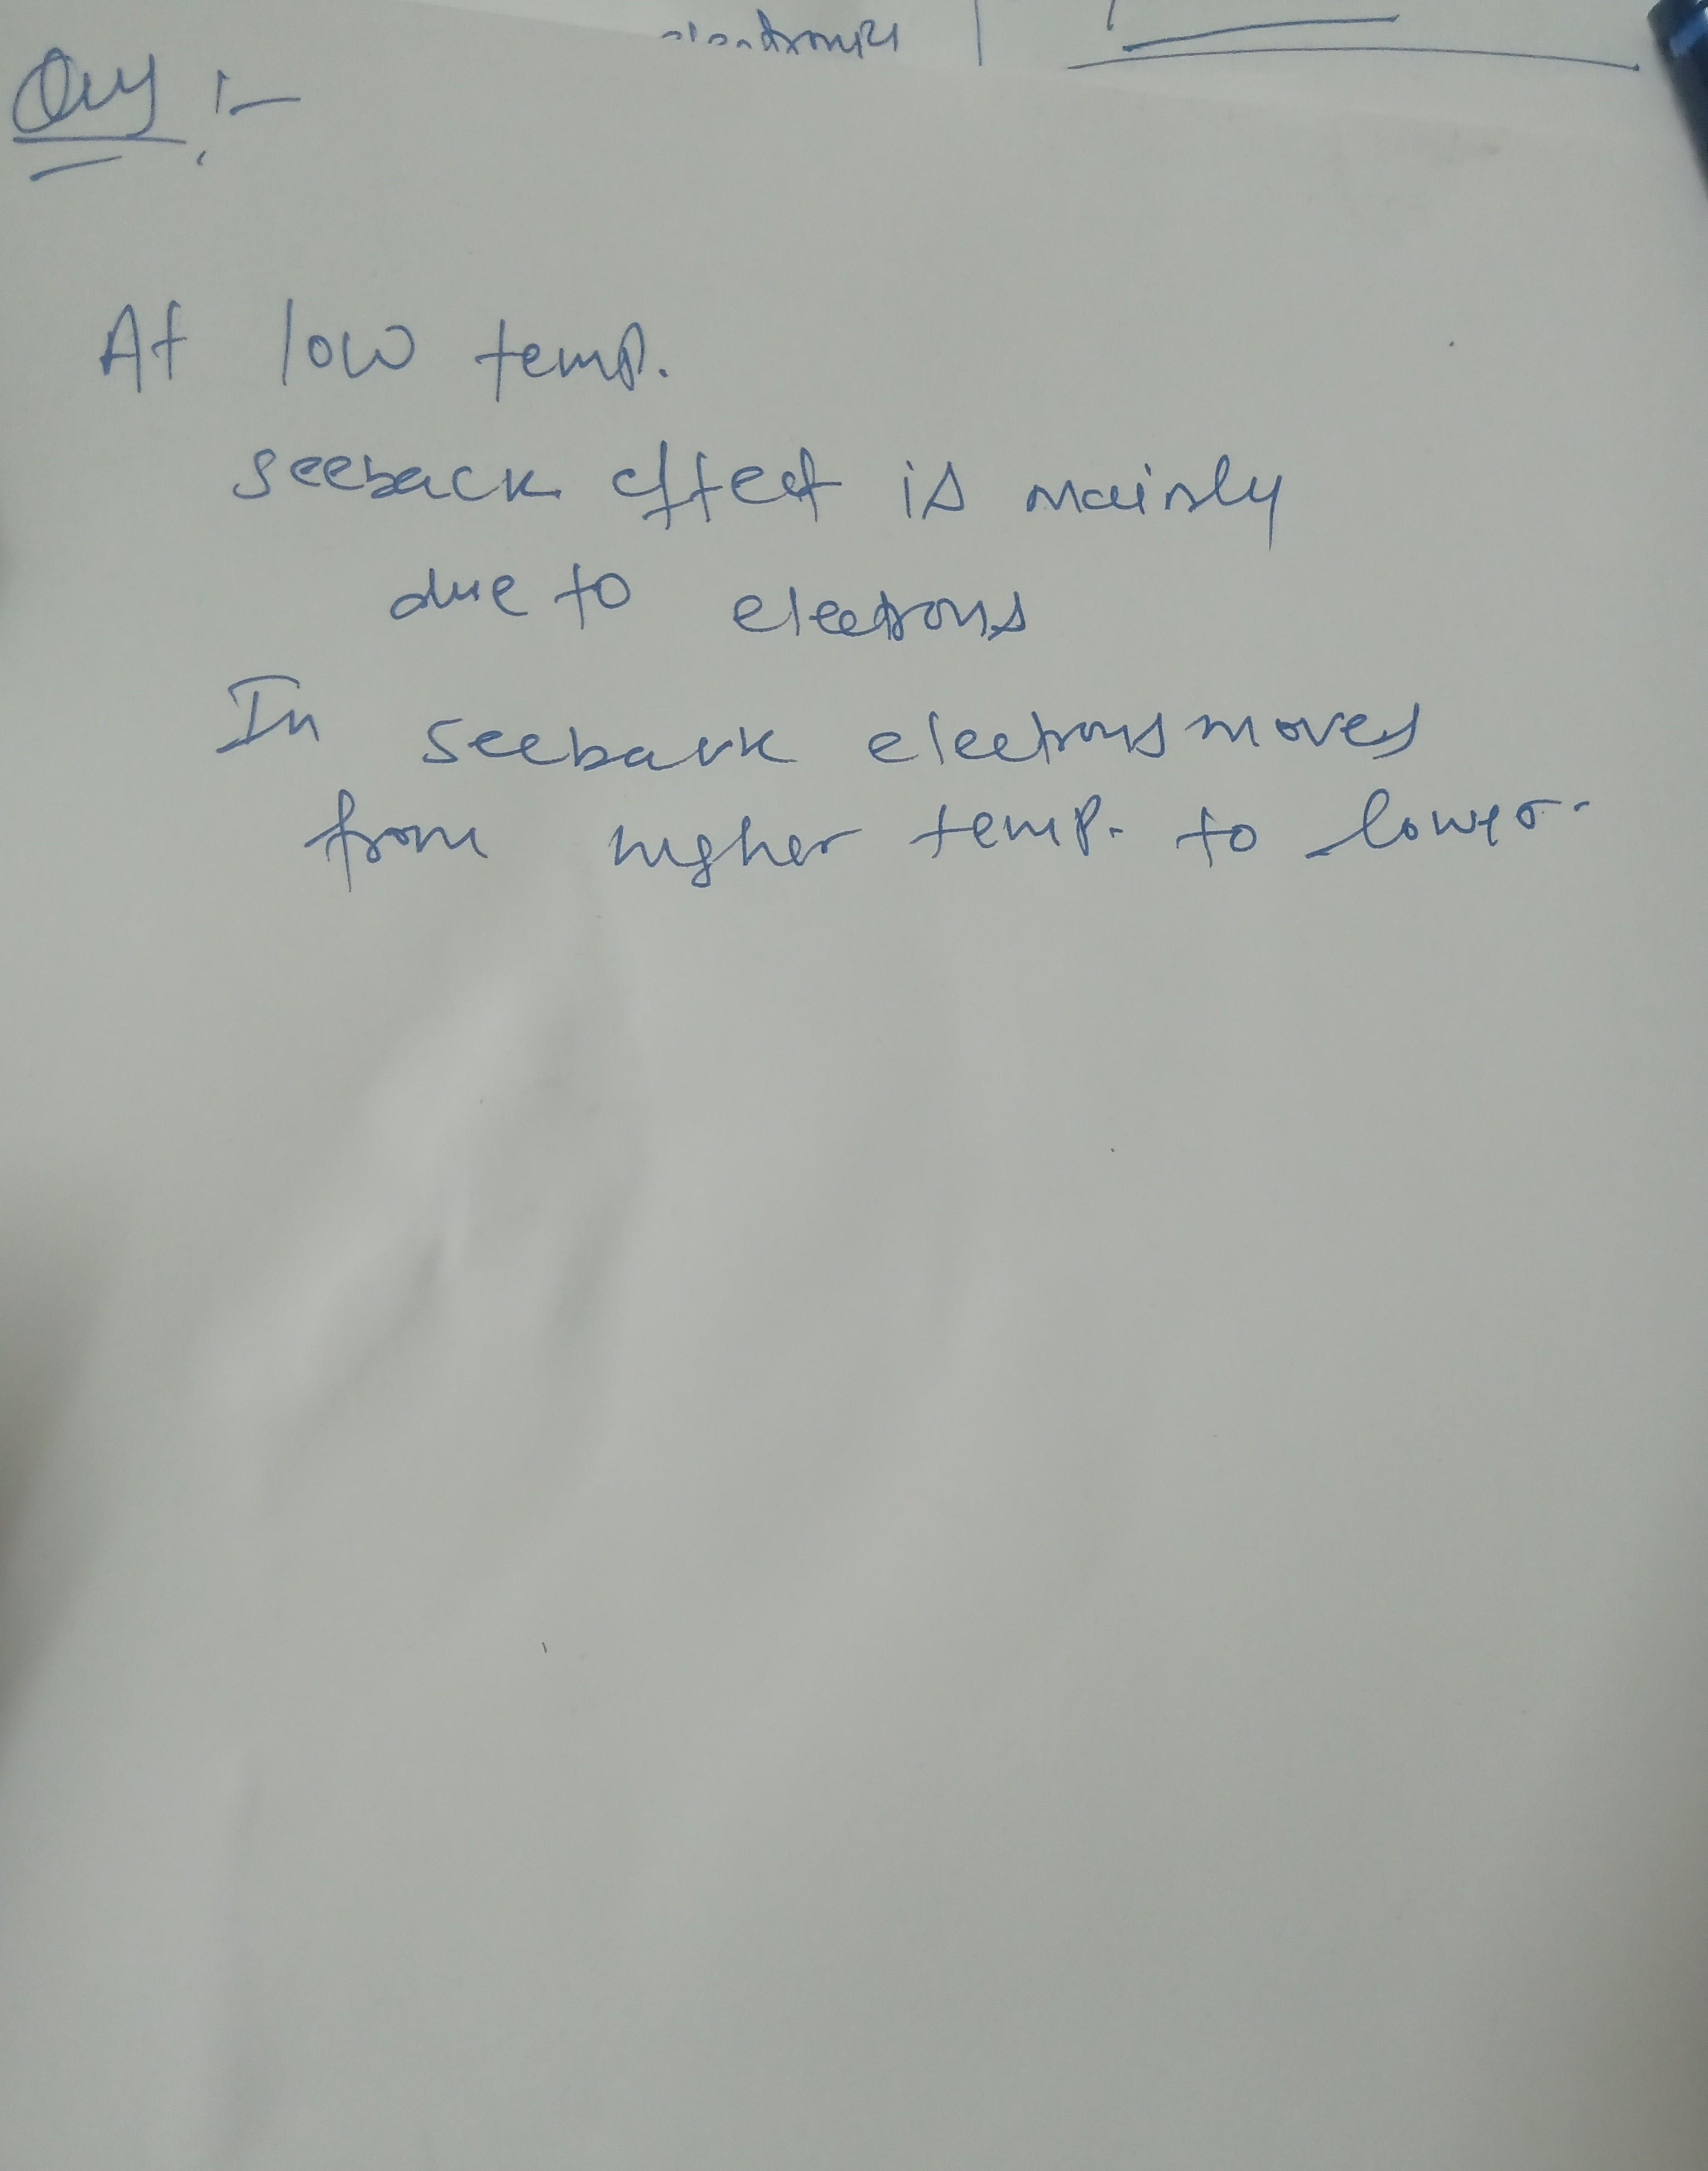 At low temp.
seeback effect is mainly
due to electrons
In seeback electrons moves
from higher temp. to lower.